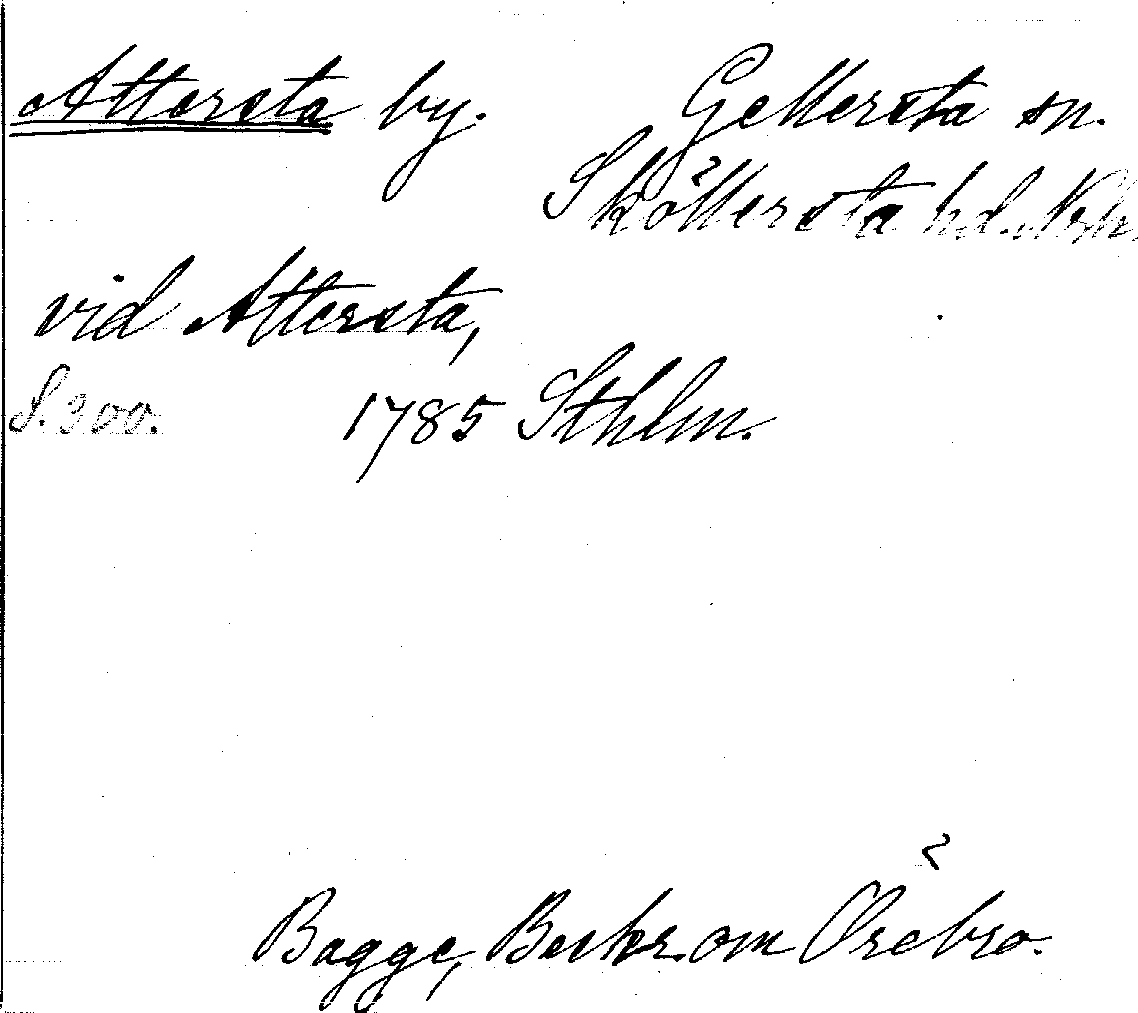 Attersta by. Gellersta sn.
Sköllersta hd. Nrk.
vid Attersta,
S. 300. 1785 Sthlm.
Bagge, Beskr. om Örebro.